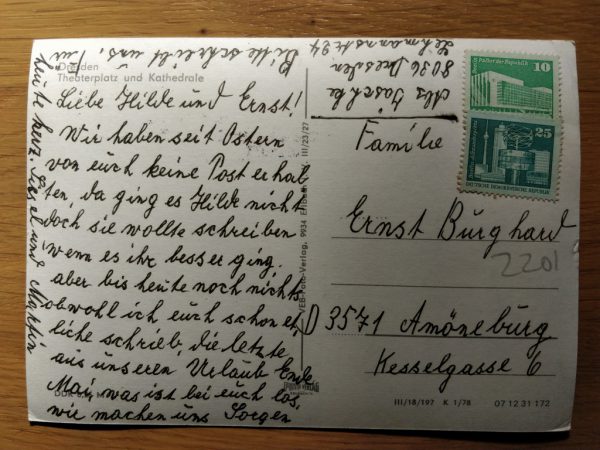 Dresden
Theaterplatz und Kathedrale
Liebe Hilde und Ernst!
Wir haben seit Ostern
von euch keine Post erhal
ten, da ging es Hilde nicht
doch sie wollte schreiben
wenn es ihr besser ging.
aber bis heute noch nichts
obwohl ich euch schon et
liche schrieb, die letzte
aus unseren Urlaube Ende
Mai, was ist bei euch los,
wir machen uns Sorgen
Bitte schreibt uns. Für
heute herz. und Martin
8036 Dresden
III/23/27
VEB Foto-Verlag, 9934
Palast der Republik
10
25
DEUTSCHE DEMOKRATISCHE REPUBLIK
Familie
Ernst Burghard
2201
D 3571 Amöneburg
Kesselgasse 6
III/18/197 K 1/78 07 12 31 172